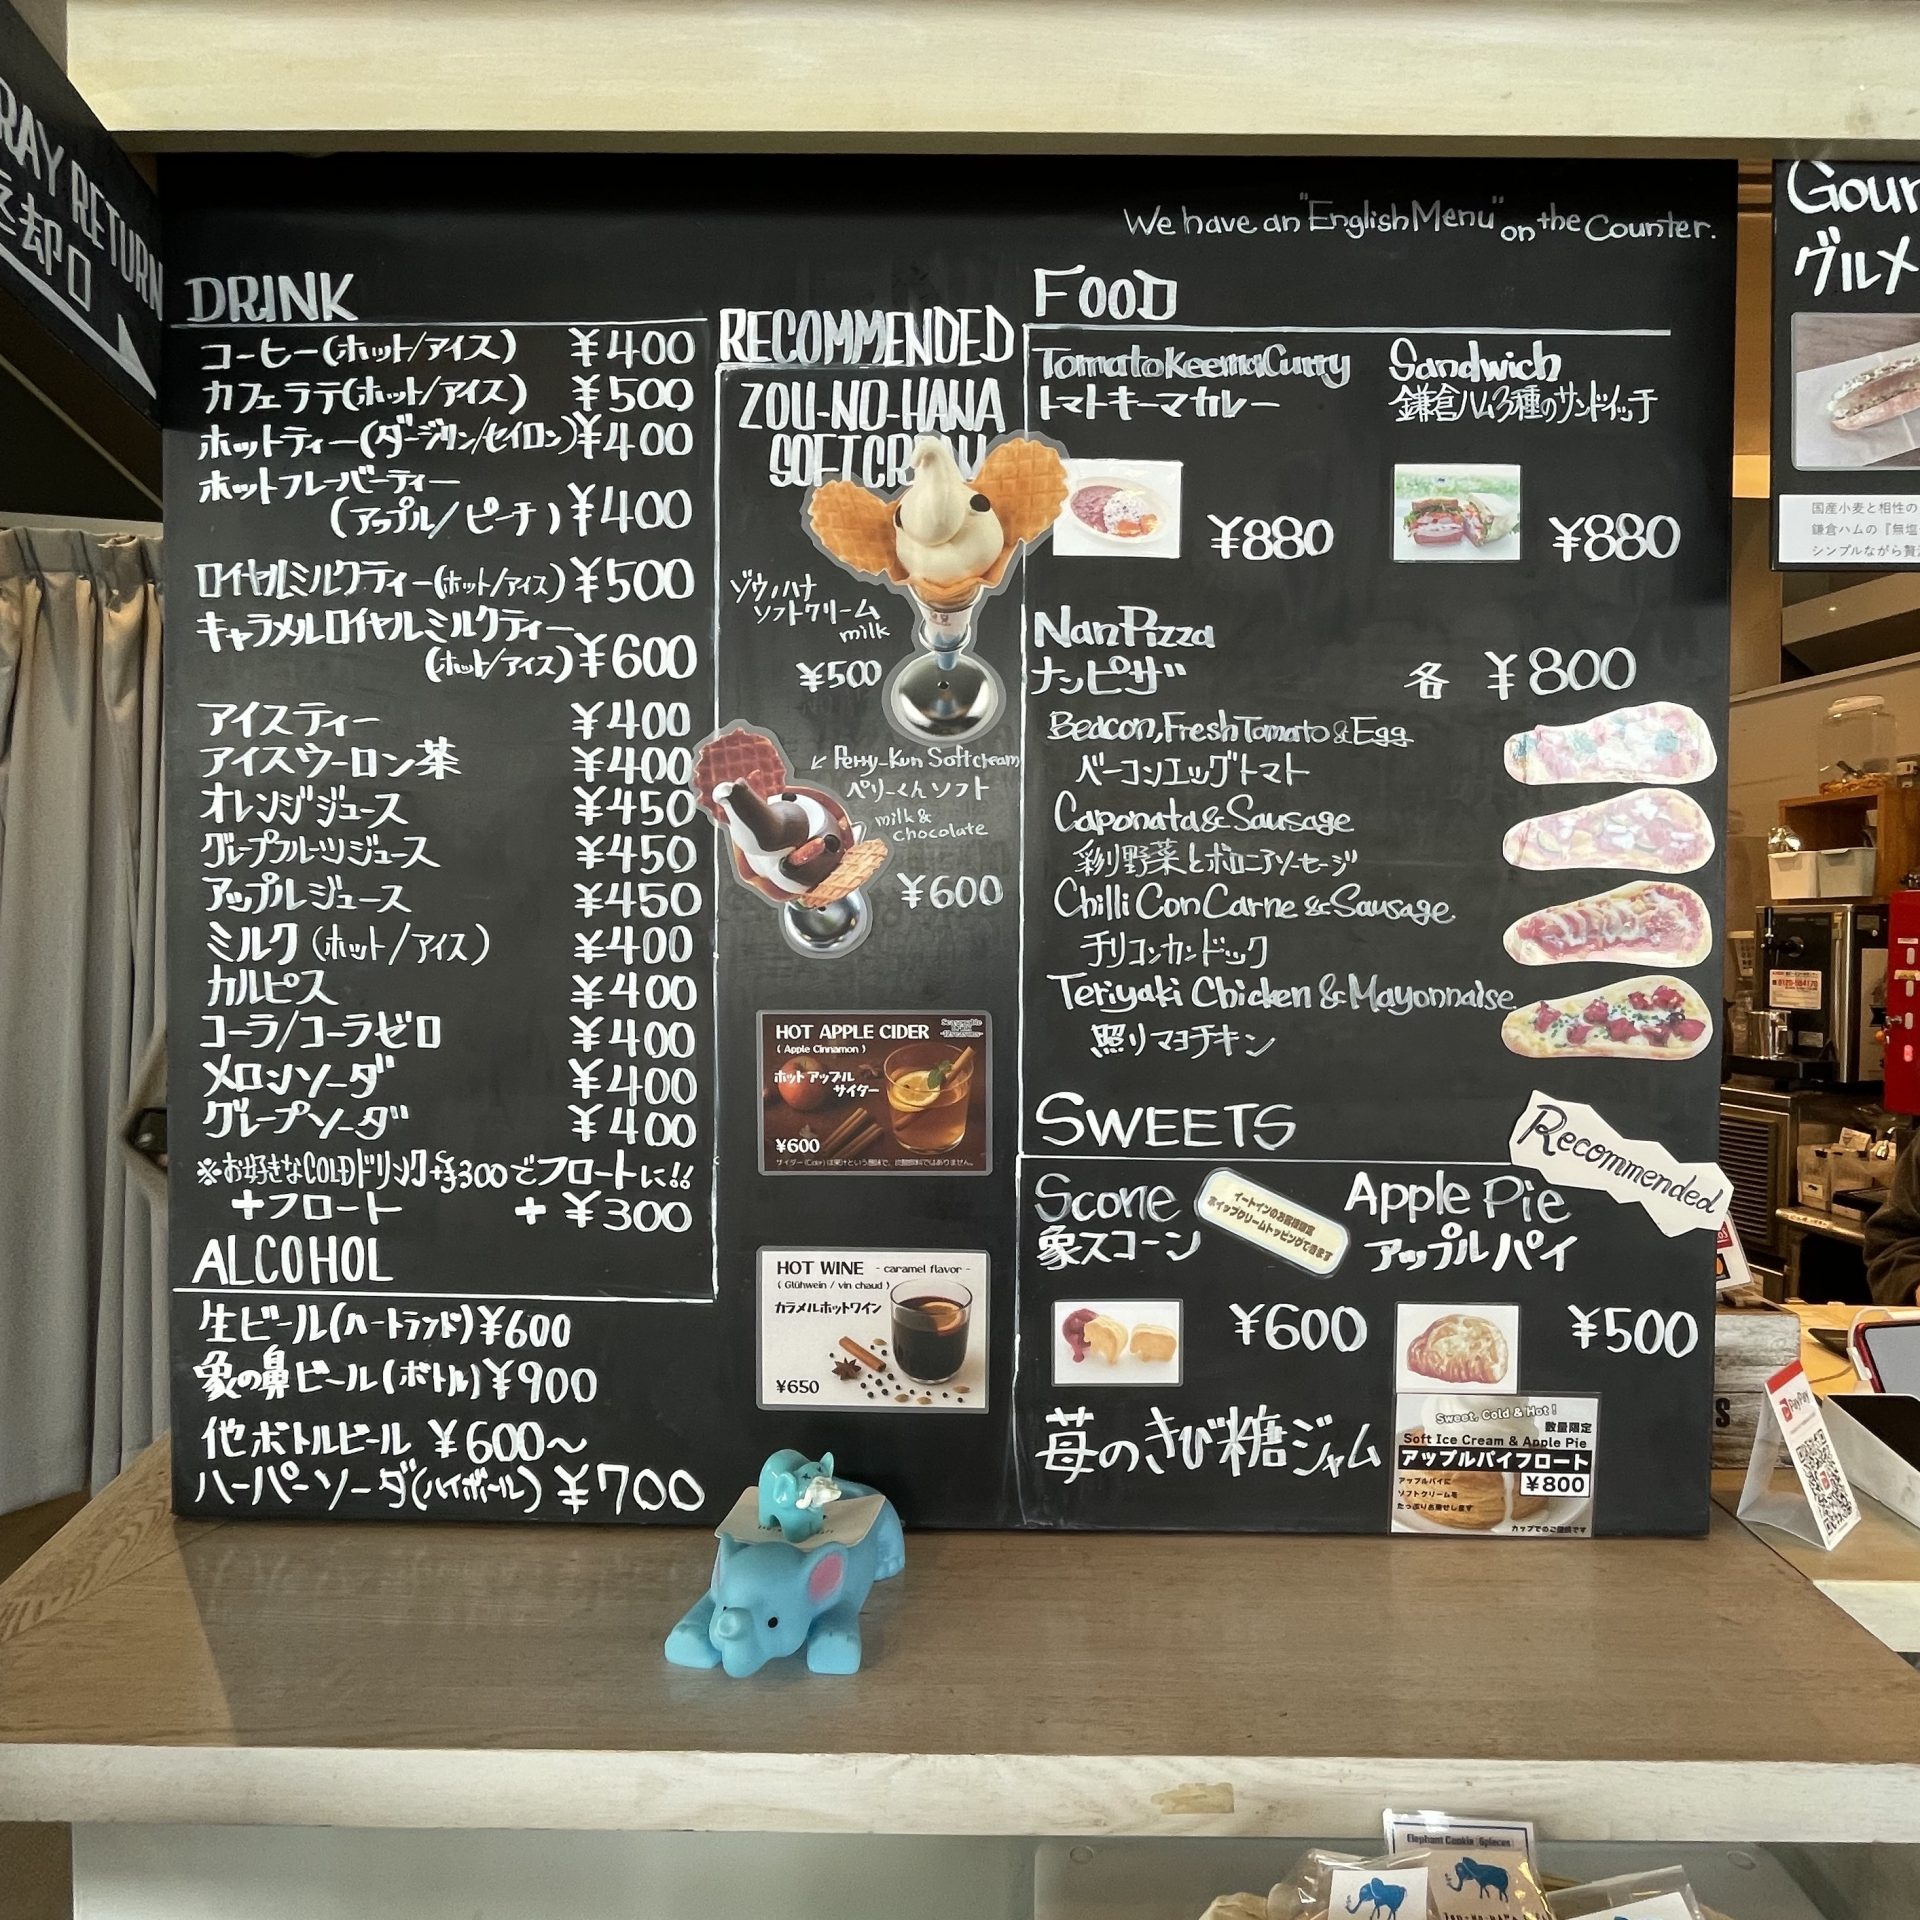 RAY RETURN
返却口
We have an "English Menu" on the Counter.
DRINK
コーヒー(ホット/アイス) ¥400
カフェラテ(ホット/アイス) ¥500
ホットティー(ダージリン/セイロン) ¥400
ホットフレーバーティー
(アップル/ピーチ) ¥400
ロイヤルミルクティー(ホット/アイス) ¥500
キャラメルロイヤルミルクティー
(ホット/アイス) ¥600
アイスティー ¥400
アイスウーロン茶 ¥400
オレンジジュース ¥450
グレープフルーツジュース ¥450
アップルジュース ¥450
ミルク(ホット/アイス) ¥400
カルピス ¥400
コーラ/コーラゼロ ¥400
メロンソーダ ¥400
グレープソーダ ¥400
※お好きなCOLDドリンク+¥300でフロートに!!
+フロート +¥300
ALCOHOL
生ビール(ハートランド) ¥600
象の鼻ビール(ボトル) ¥900
他ボトルビール ¥600〜
ハーパーソーダ(ハイボール) ¥700
RECOMMENDED
ZOU-NO-HANA
SOFT CREAM
ゾウノハナ
ソフトクリーム
milk
¥500
↙ Perry-Kun Softcream
ペリーくんソフト
milk &
chocolate
¥600
HOT APPLE CIDER
( Apple Cinnamon )
ホットアップル
サイダー
¥600
サイダー(Cider)は果汁という意味で、炭酸飲料ではありません。
HOT WINE - caramel flavor -
( Glühwein / vin chaud )
カラメルホットワイン
¥650
FOOD
Tomato Keema Curry
トマトキーマカレー
¥880
Sandwich
鎌倉ハム3種のサンドイッチ
¥880
Nan Pizza
ナンピザ 各 ¥800
Beacon, Fresh Tomato & Egg
ベーコンエッグトマト
Caponata & Sausage
彩り野菜とボロニアソーセージ
Chilli Con Carne & Sausage
チリコンカンドック
Teriyaki Chicken & Mayonnaise
照りマヨチキン
SWEETS
Recommended
Scone
象スコーン
イートインのお客様限定
ホイップクリームトッピングできます
¥600
Apple Pie
アップルパイ
¥500
苺のきび糖ジャム
Sweet, Cold & Hot !
数量限定
Soft Ice Cream & Apple Pie
アップルパイフロート
¥800
アップルパイに
ソフトクリームを
たっぷりお乗せします
カップでのご提供です
Gour
グルメ
国産小麦と相性の
鎌倉ハムの『無塩
シンプルながら贅
PayPay
Elephant Cookie [6pieces]